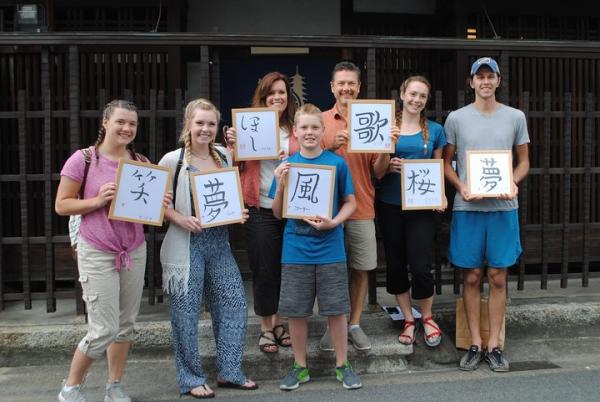 笑
夢
ほし
風
歌
桜
夢